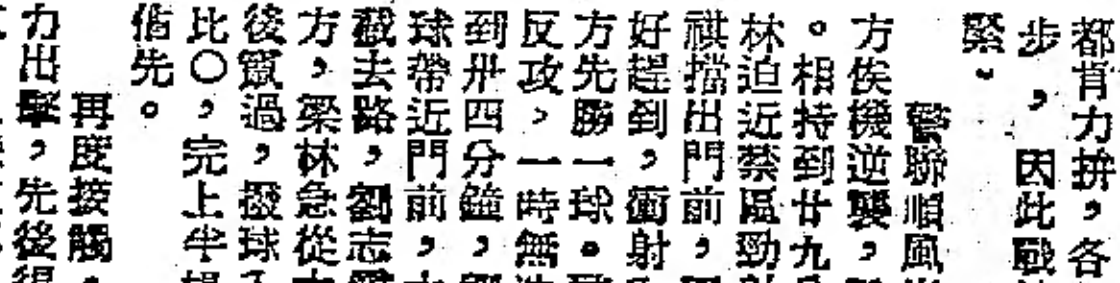 都肯力拼，各
步，因此戰
緊。
警聯順風
方俟機逆襲，
。相持到廿九
林迫近禁區勁射
祺擋出門前，
好趕到，衝射
方先勝一球。
反攻，一時無
到卅四分鐘，
球帶近門前，
截去路，劉志
方，梁林急從
後竄過，撥球入
比〇，完上半場
偕先。
再度接觸，
力出擊，先後得